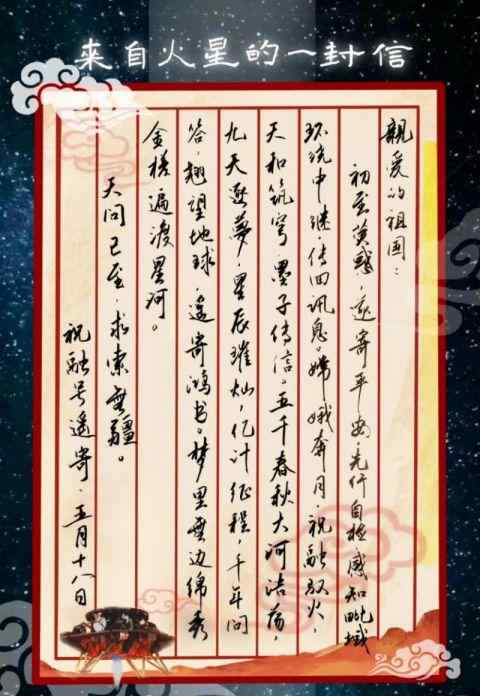 来自火星的一封信
親爱的祖国：
初至荧惑，遥寄平安。先行自检感知
环绕中继，传回讯息。嫦娥奔月，祝融驭火，
天和筑穹，墨子传信。五千春秋大河浩荡，
九天逐梦，星辰璀灿，亿计征程，千年问
答，翘望地球，遥寄鸿书。梦里無边绵秀
金槎遍渡星河。
天问已至，求索無疆。
祝融号遥寄，五月十八日